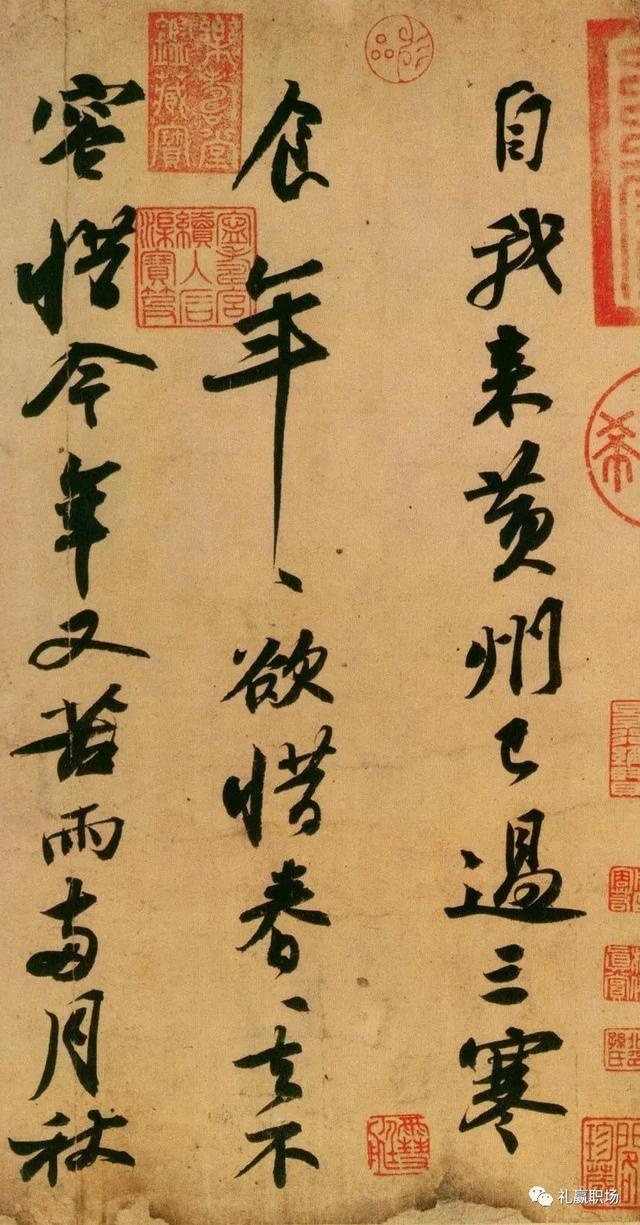 自我来黄州已過三寒
食年〻欲惜春〻去不
容惜今年又苦雨兩月秋
礼赢职场